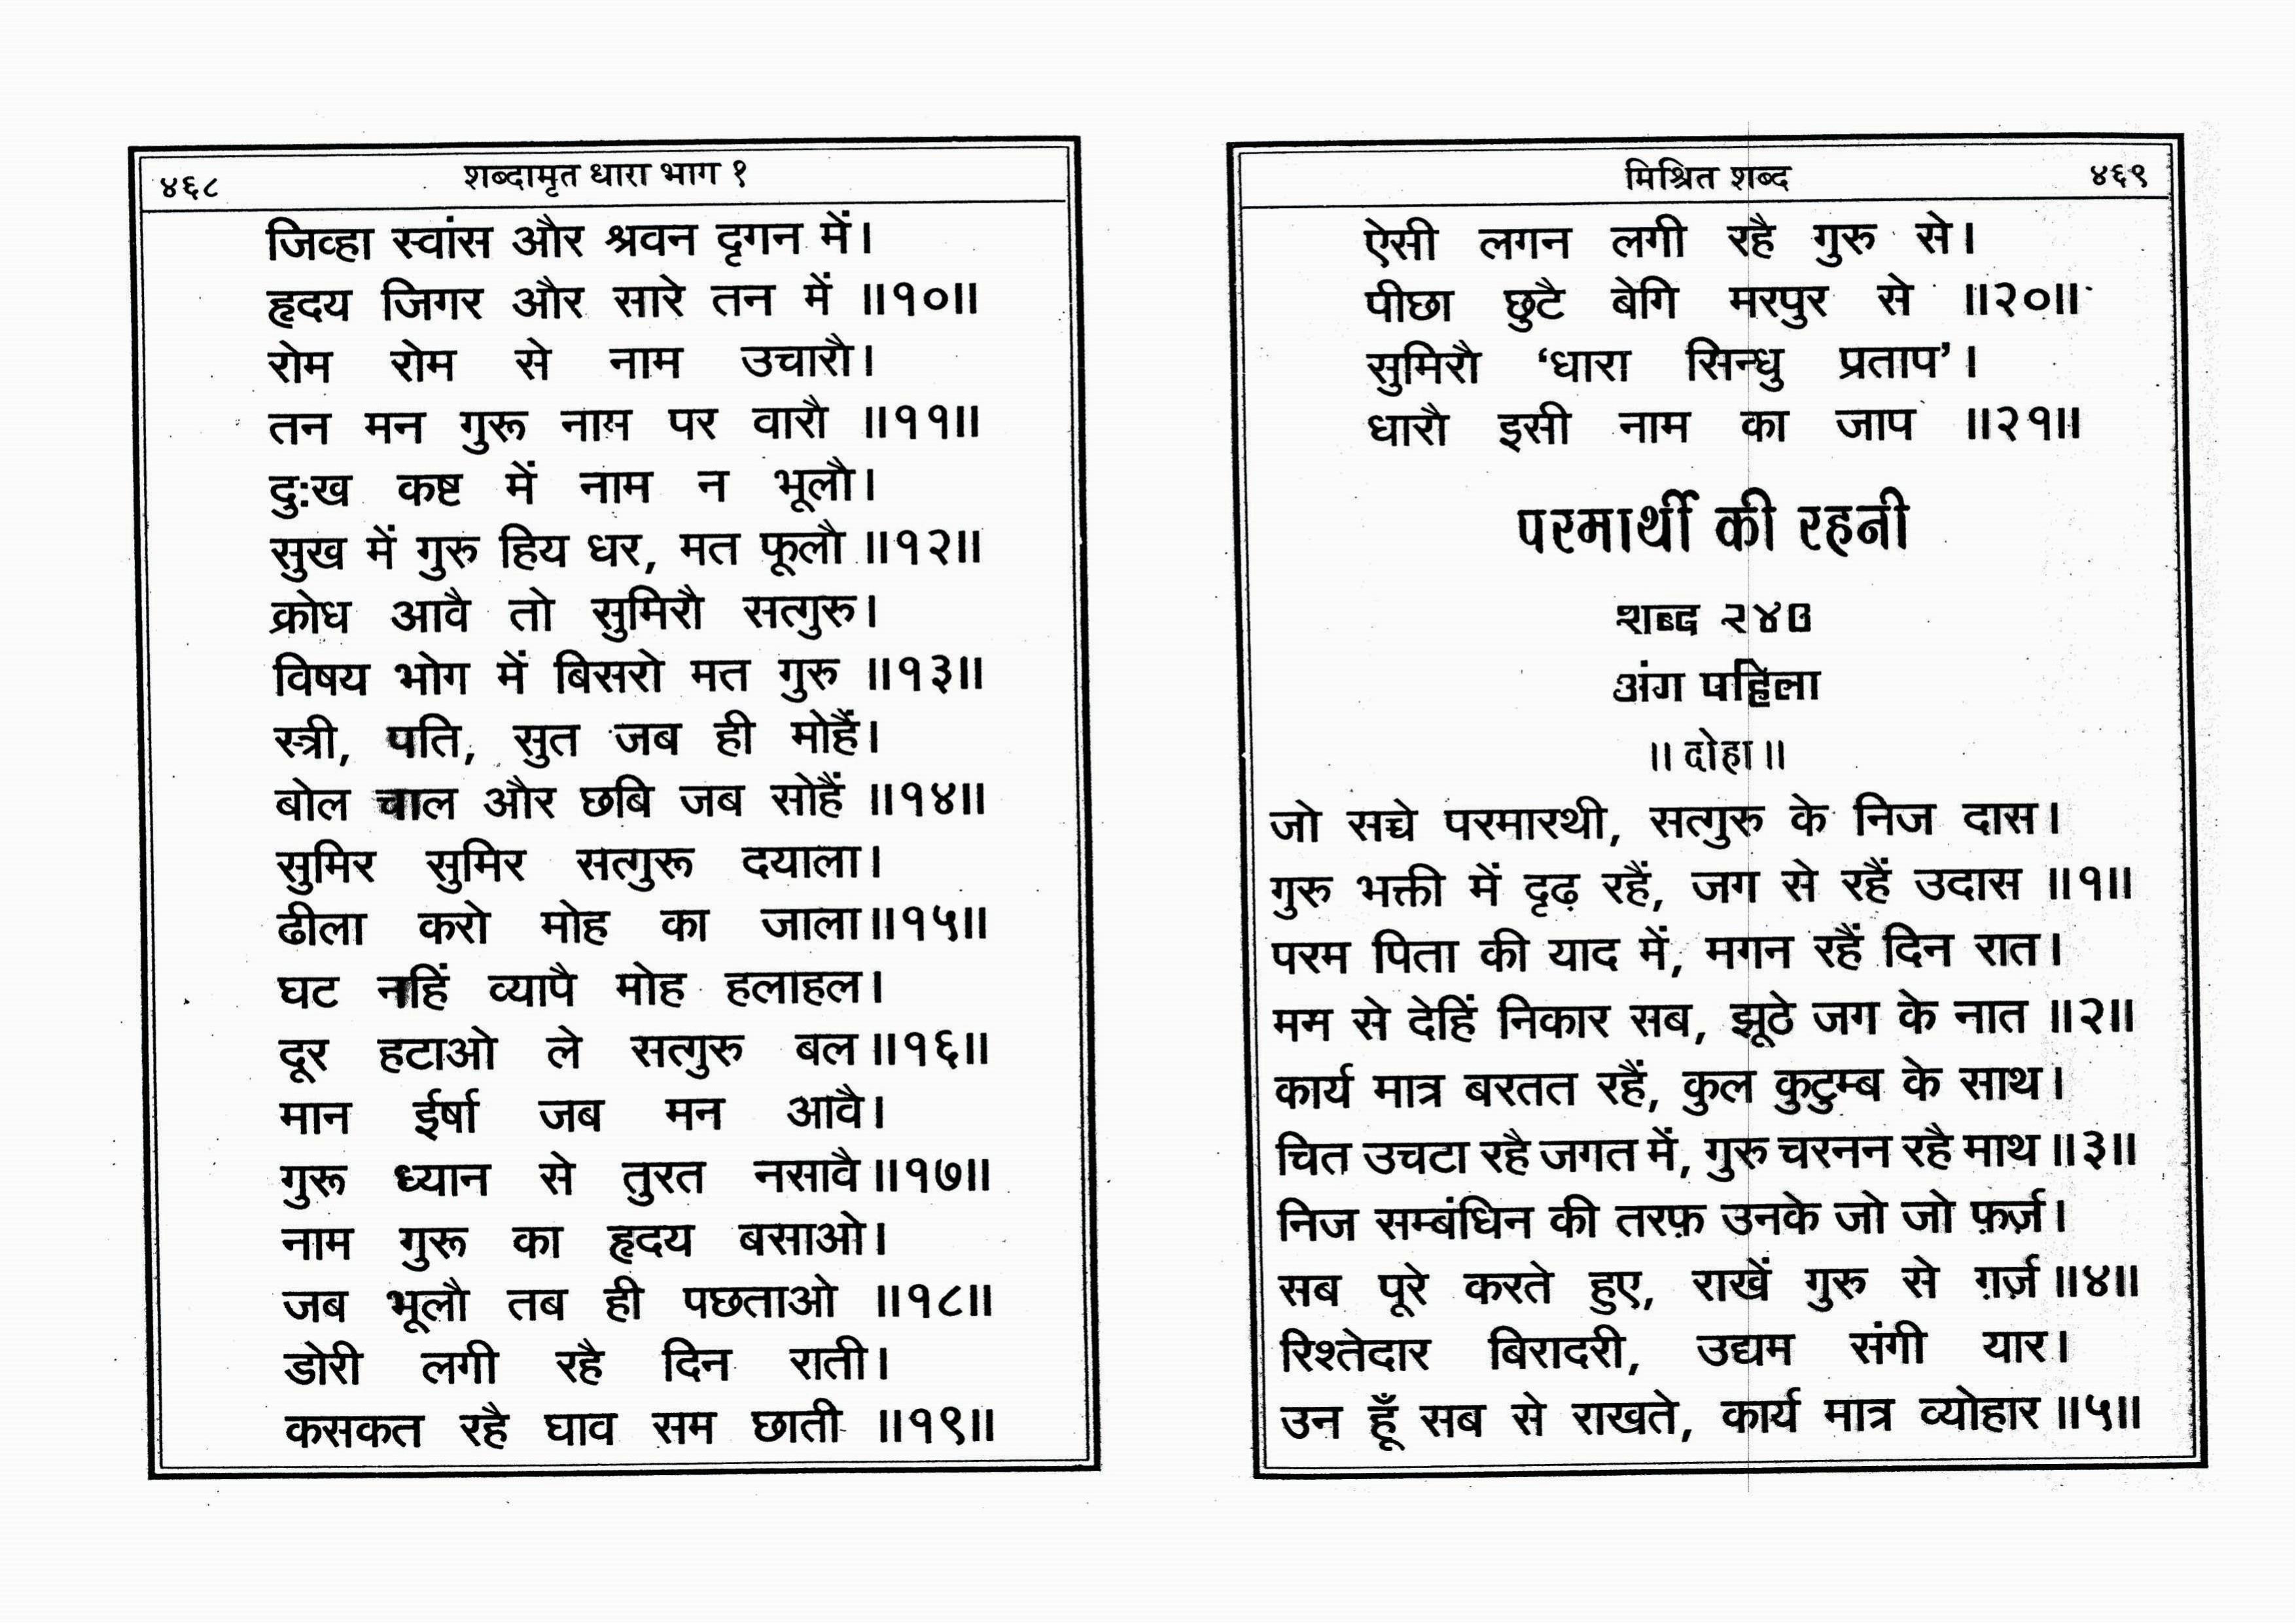 ४६८ शब्दामृत धारा भाग १
जिव्हा स्वांस और श्रवन दृगन में।
हृदय जिगर और सारे तन में ॥१०॥
रोम रोम से नाम उचारौ।
तन मन गुरू नाम पर वारौ ॥११॥
दुःख कष्ट में नाम न भूलौ।
सुख में गुरु हिय धर, मत फूलौ ॥१२॥
क्रोध आवै तो सुमिरौ सत्गुरु।
विषय भोग में बिसरो मत गुरु ॥१३॥
स्त्री, पति, सुत जब ही मोहैं।
बोल चाल और छबि जब सोहैं ॥१४॥
सुमिर सुमिर सत्गुरू दयाला।
ढीला करो मोह का जाला॥१५॥
घट नहिं व्यापै मोह हलाहल।
दूर हटाओ ले सत्गुरु बल॥१६॥
मान ईर्षा जब मन आवै।
गुरू ध्यान से तुरत नसावै॥१७॥
नाम गुरू का हृदय बसाओ।
जब भूलौ तब ही पछताओ ॥१८॥
डोरी लगी रहै दिन राती।
कसकत रहै घाव सम छाती ॥१९॥
मिश्रित शब्द ४६९
ऐसी लगन लगी रहै गुरु से।
पीछा छुटै बेगि मरपुर से ॥२०॥
सुमिरौ ‘धारा सिन्धु प्रताप’।
धारौ इसी नाम का जाप ॥२१॥
परमार्थी की रहनी
शब्द
अंग पहिला
॥ दोहा ॥
जो सच्चे परमारथी, सत्गुरु के निज दास।
गुरु भक्ती में दृढ़ रहैं, जग से रहैं उदास ॥१॥
परम पिता की याद में, मगन रहैं दिन रात।
मन से देहिं निकार सब, झूठे जग के नात ॥२॥
कार्य मात्र बरतत रहैं, कुल कुटुम्ब के साथ।
चित उचटा रहै जगत में, गुरु चरनन रहै माथ ॥३॥
निज सम्बंधिन की तरफ़ उनके जो जो फ़र्ज़।
सब पूरे करते हुए, राखें गुरु से ग़र्ज़ ॥४॥
रिश्तेदार बिरादरी, उद्यम संगी यार।
उन हूँ सब से राखते, कार्य मात्र व्योहार ॥५॥